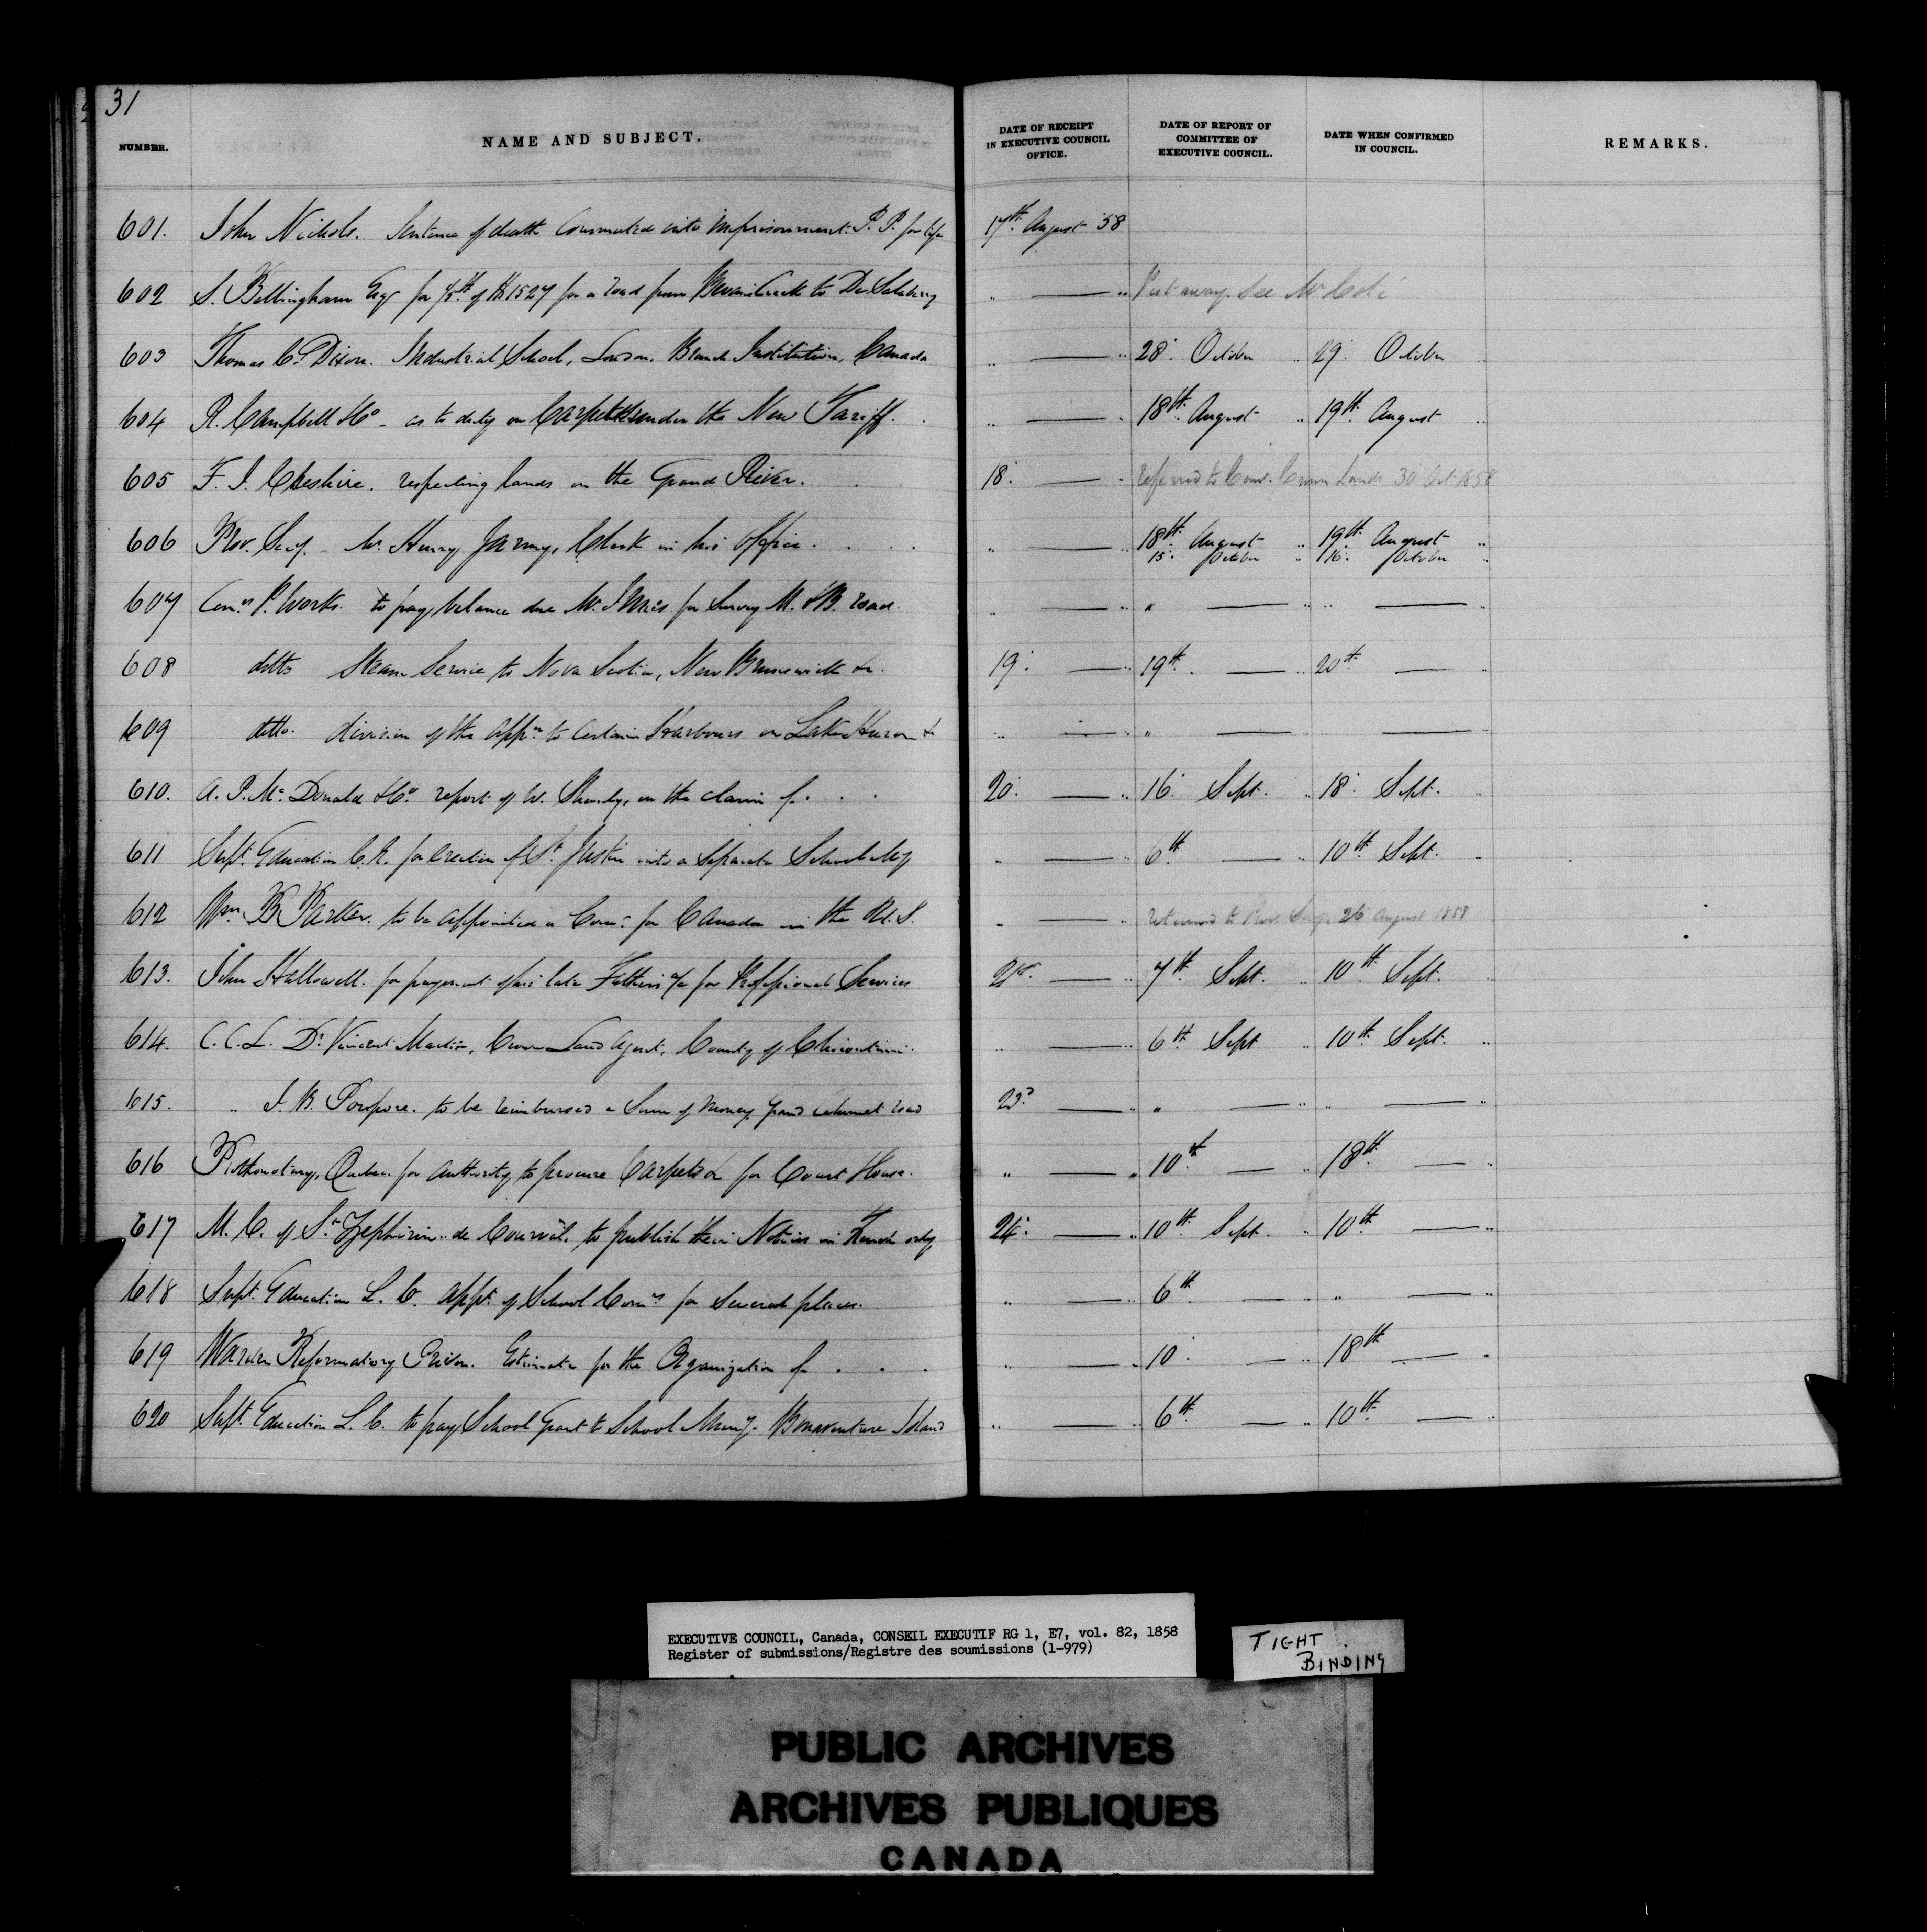 31
NUMBER. NAME AND SUBJECT. DATE OF RECEIPT IN EXECUTIVE COUNCIL OFFICE. DATE OF REPORT OF COMMITTEE OF EXECUTIVE COUNCIL. DATE WHEN CONFIRMED IN COUNCIL. REMARKS.
601. John Nichols. Sentence of death Commuted into imprisonment P. P. for life 17th August 58
602 S. Bellingham Esqr for of 1527 for a road from to De Salaberry " — " Put away. See Mr
603 Thomas C. Dixon. Industrial School, London. Branch Institution, Canada " — " 28. October " 29. October
604 R. Campbell & Co - as to duty on Carpets under the New Tariff. " — " 18th August " 19th August "
605 F. J. Cheshire. respecting lands on the Grand River. 18. — " referred to Com. Crown Lands 30 Oct 1858
606 Prov. Secy. Mr. Henry Jarmy, Clerk in his Office. " — " 18th August " 19th August "
15. October " 16. October "
607 Com.rs P. Works. to pay balance due Mr. for Survey M. & B. road. " — " " — " " — "
608 ditto Steam Service to Nova Scotia, New Brunswick &c. 19. — " 19th. — " 20th — "
609 ditto. division of the Appn. to certain Harbours on Lake Huron & " — " " — " " — "
610. A. P. Mc Donald & Co. report of W. Shanly, on the claim of. . . 20. — " 16. Sept. " 18. Sept. "
611 Supt. Education C. E. for erection of St. Justin into a Separate School My " — " 6th — " 10th Sept. "
612 Wm. B Parker. to be appointed a Comr. for Canada in the U. S. " — " returned to Prov. Secy. 26 August 1858
613. John Hallowell. for payment of his late Fathers a/c for Professional Services 21st. — " 7th Sept. " 10th Sept. "
614. C. C. L. Dr. Vincent Martin, Crown Land Agent, County of Chicoutimi. " — " 6th Sept " 10th Sept. "
615. " J. B. Poupore. to be reimbursed a Sum of money Grand Calumet road 23d — " " — " " — "
616 Prothonotary, Quebec. for authority to procure Carpets & for Court House. " — " 10th — " 18th — "
617 M. C. of St. Zephirin de Courval. to publish their Notices in French only 24. — " 10th Sept. " 10th — "
618 Supt. Education L. C. Appt. of School Comrs for Several places. " — " 6th — " " — "
619 Warden Reformatory Prison. Estimate for the Organization of . . . " — " 10. — " 18th — "
620 Supt. Education L. C. to pay School Grant to School Muny. Bonaventure Island " — " 6th — " 10th — "
EXECUTIVE COUNCIL, Canada, CONSEIL EXECUTIF RG 1, E7, vol. 82, 1858
Register of submissions/Registre des soumissions (1-979)
TIGHT
BINDING
PUBLIC ARCHIVES
ARCHIVES PUBLIQUES
CANADA